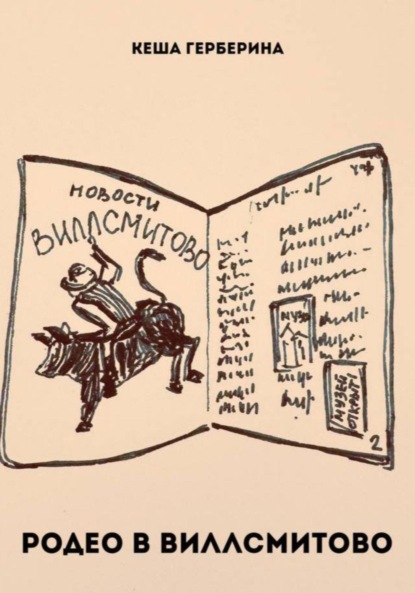 КЕША ГЕРБЕРИНА
НОВОСТИ
ВИЛЛСМИТОВО
МУЗЕЙ
ОТКРЫТ
2
РОДЕО В ВИЛЛСМИТОВО